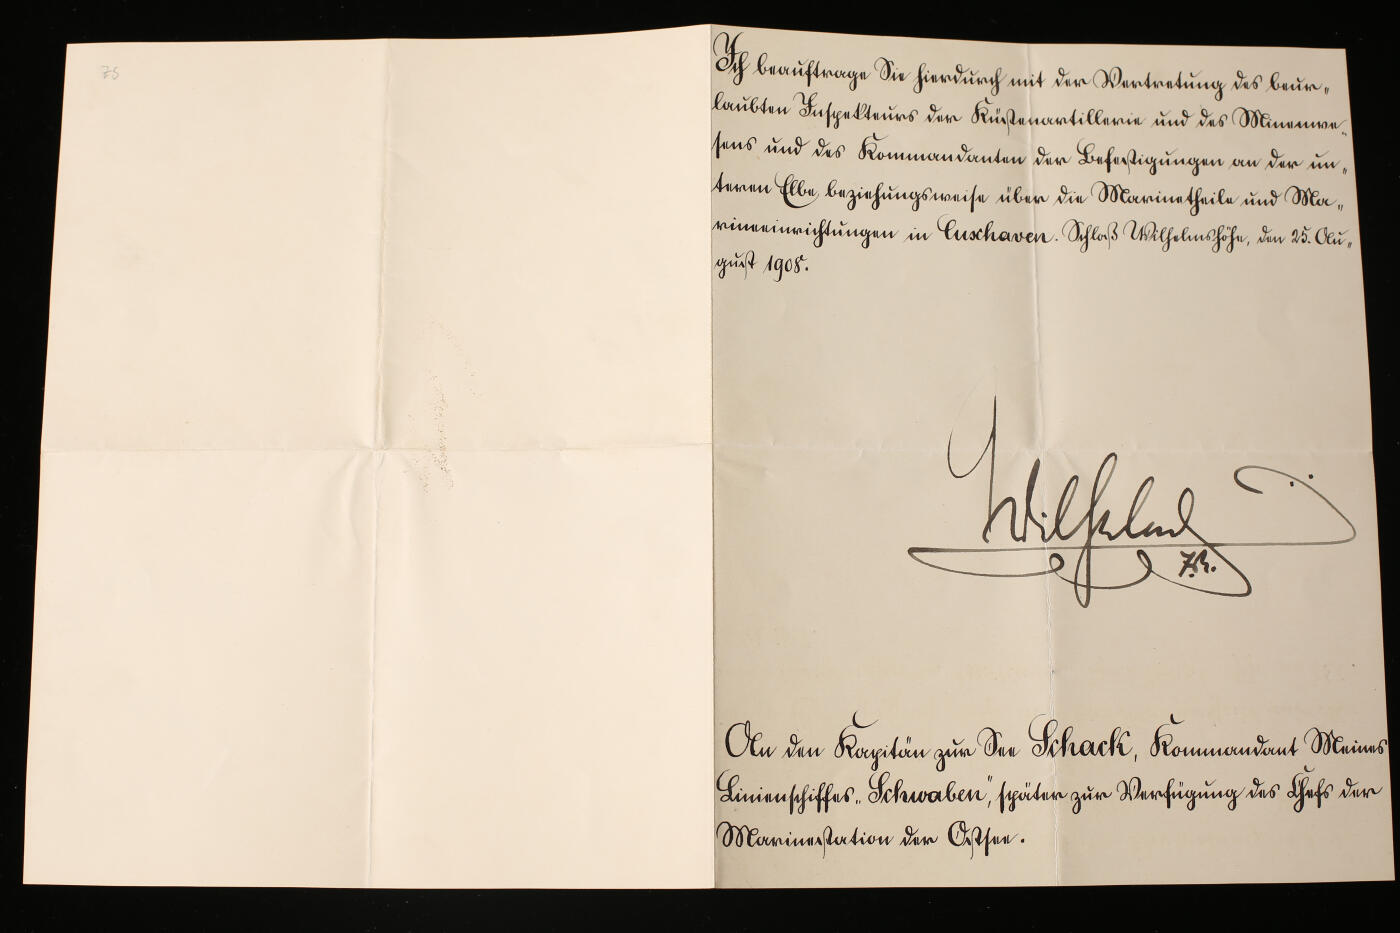 75
Ich beauftrage Sie hierdurch mit der Vertretung des beur-
laubten Inspekteurs der Küstenartillerie und des Minenwe-
sens und des Kommandanten der Befestigungen an der un-
teren Elbe, beziehungsweise über die Marinetheile und Ma-
rineeinrichtungen in Cuxhaven. Schloß Wilhelmshöhe, den 25. Au-
gust 1908.
Wilhelm
An den Kapitän zur See Schack, Kommandant Meines
Linienschiffes „Schwaben“, später zur Verfügung des Chefs der
Marinestation der Ostsee.